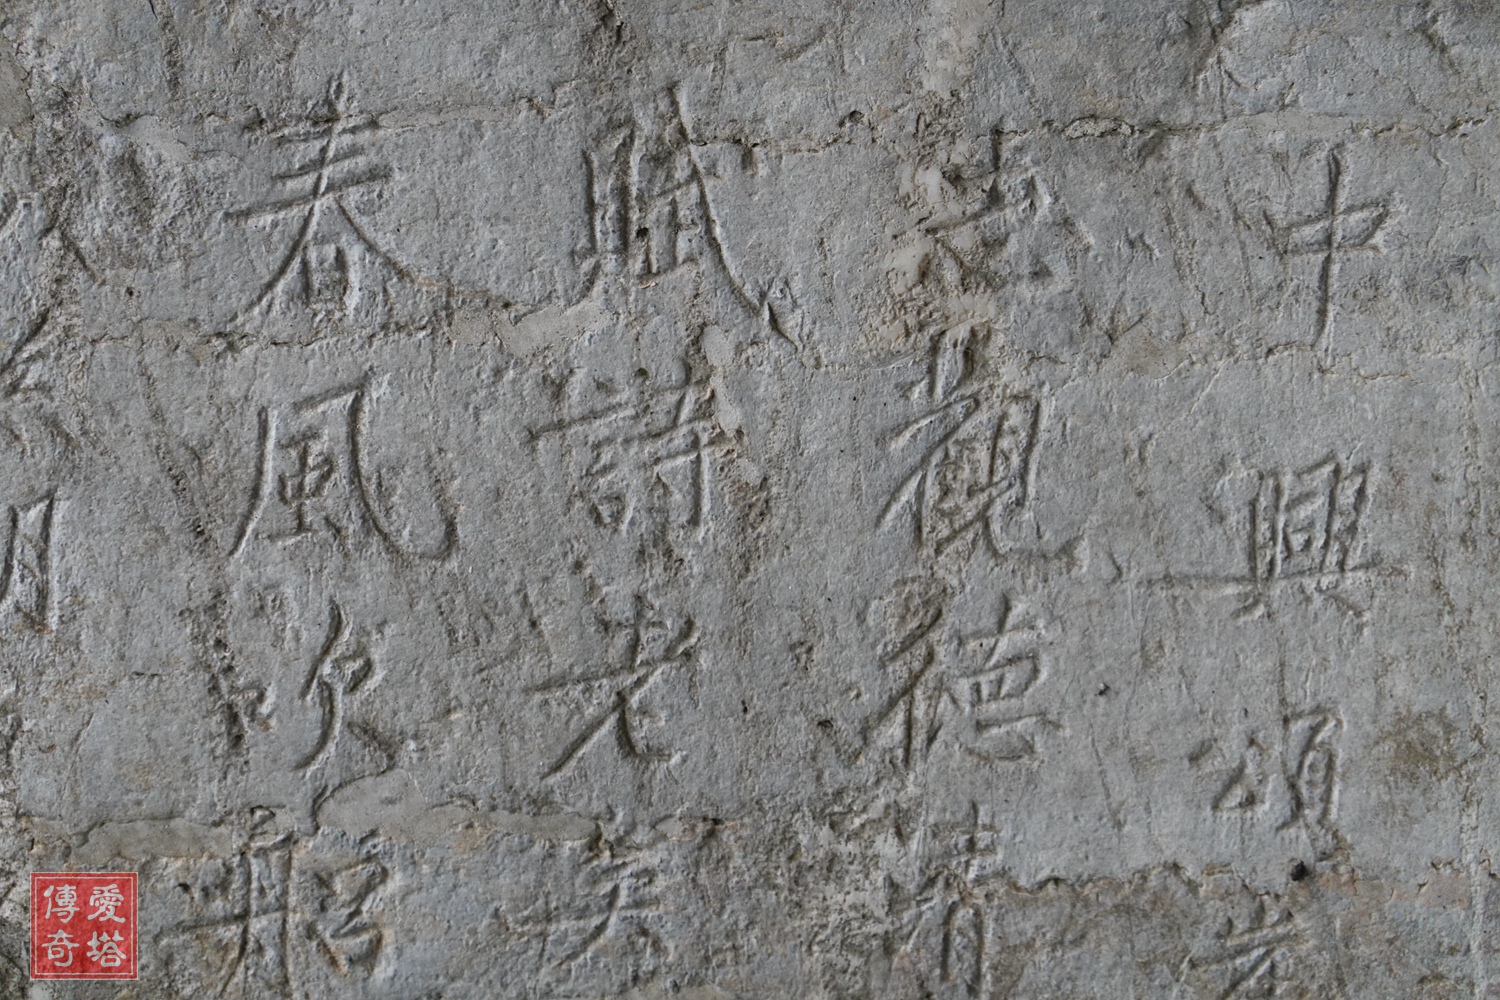 中興頌崖
志觀德清
賦詩老矣
春風吹船
愛塔
傳奇